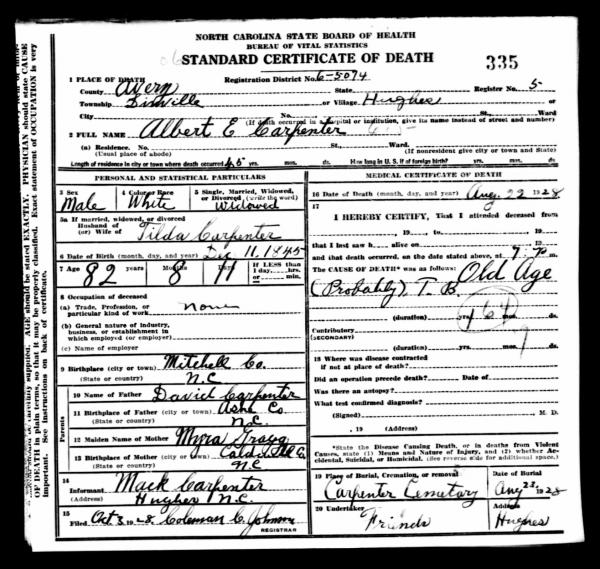 NORTH CAROLINA STATE BOARD OF HEALTH
BUREAU OF VITAL STATISTICS
STANDARD CERTIFICATE OF DEATH
335
1 PLACE OF DEATH
Registration District No. 6-5074
Register No. 5
County Avery
State
Township Linville
or Village Hughes
City No. St., Ward
(If death occurred in a hospital or institution, give its name instead of street and number)
2 FULL NAME Albert E Carpenter
(a) Residence. No. St., Ward.
(Usual place of abode) (If nonresident give city or town and State)
Length of residence in city or town where death occurred 45 yrs. mos. ds. How long in U. S. if of foreign birth? yrs. mos. ds.
PERSONAL AND STATISTICAL PARTICULARS
3 Sex
Male
4 Color or Race
White
5 Single, Married, Widowed, or Divorced (write the word)
Widowed
5a If married, widowed, or divorced
Husband of
(or) Wife of Tilda Carpenter
6 Date of Birth (month, day, and year) Dec 11, 1845
7 Age 82 years 8 Months 11 Days
If LESS than
1 day, hrs.
or min.
8 Occupation of deceased
(a) Trade, Profession, or
particular kind of work none
(b) General nature of industry,
business, or establishment in
which employed (or employer)
(c) Name of employer
9 Birthplace (city or town) Mitchell Co.
(State or country) N.C
Parents
10 Name of Father David Carpenter
11 Birthplace of Father (city or town) Ashe Co.
(State or country) N.C.
12 Maiden Name of Mother Myra
13 Birthplace of Mother (city or town) Caldwell Co
(State or country) N C
14
Informant Mack Carpenter
(Address) Hughes N.C.
15
Filed Oct 8, 1928. Coleman C. Johnson
REGISTRAR
MEDICAL CERTIFICATE OF DEATH
16 Date of Death (month, day, and year) Aug 22 1928
17
I HEREBY CERTIFY, That I attended deceased from
, 19 , to , 19
that I last saw h alive on , 19
and that death occurred, on the date stated above, at m.
The CAUSE OF DEATH* was as follows:
Old Age
(Probably) T. B.
(duration) yrs. mos. ds.
Contributory
(SECONDARY)
(duration) yrs. mos. ds.
18 Where was disease contracted
if not at place of death?
Did an operation precede death? Date of
Was there an autopsy?
What test confirmed diagnosis?
(Signed) M. D.
, 19 (Address)
*State the Disease Causing Death, or in deaths from Violent
Causes, state (1) Means and Nature of Injury, and (2) whether Accidental, Suicidal, or Homicidal. (See reverse side for additional space.)
19 Place of Burial, Cremation, or removal
Carpenter Cemetary
Date of Burial
Aug 23, 1928
20 Undertaker
Friends
Address
Hughes
PHYSICIAN should state CAUSE
AGE should be stated EXACTLY. Exact statement of OCCUPATION is very
OF DEATH in plain terms, so that it may be properly classified.
important. See instructions on back of certificate.